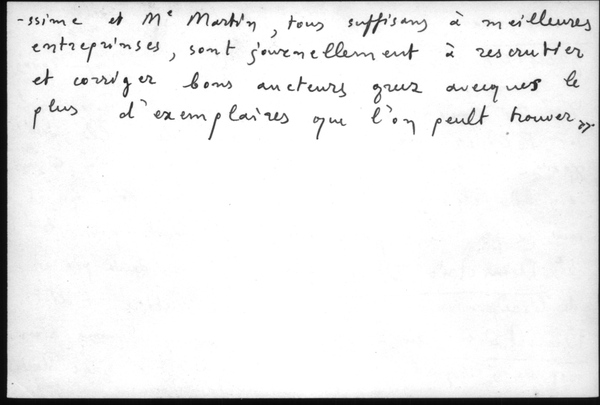 -ssime et Me Martin, tous suffisans à meilleures
entreprinses, sont journellement à rescrutier
et corriger bons aucteurs grez avecques le
plus d'exemplaires que l'on peult trouver »